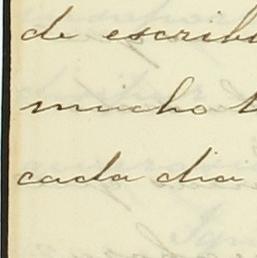 de escribi
mucho t
cada dia